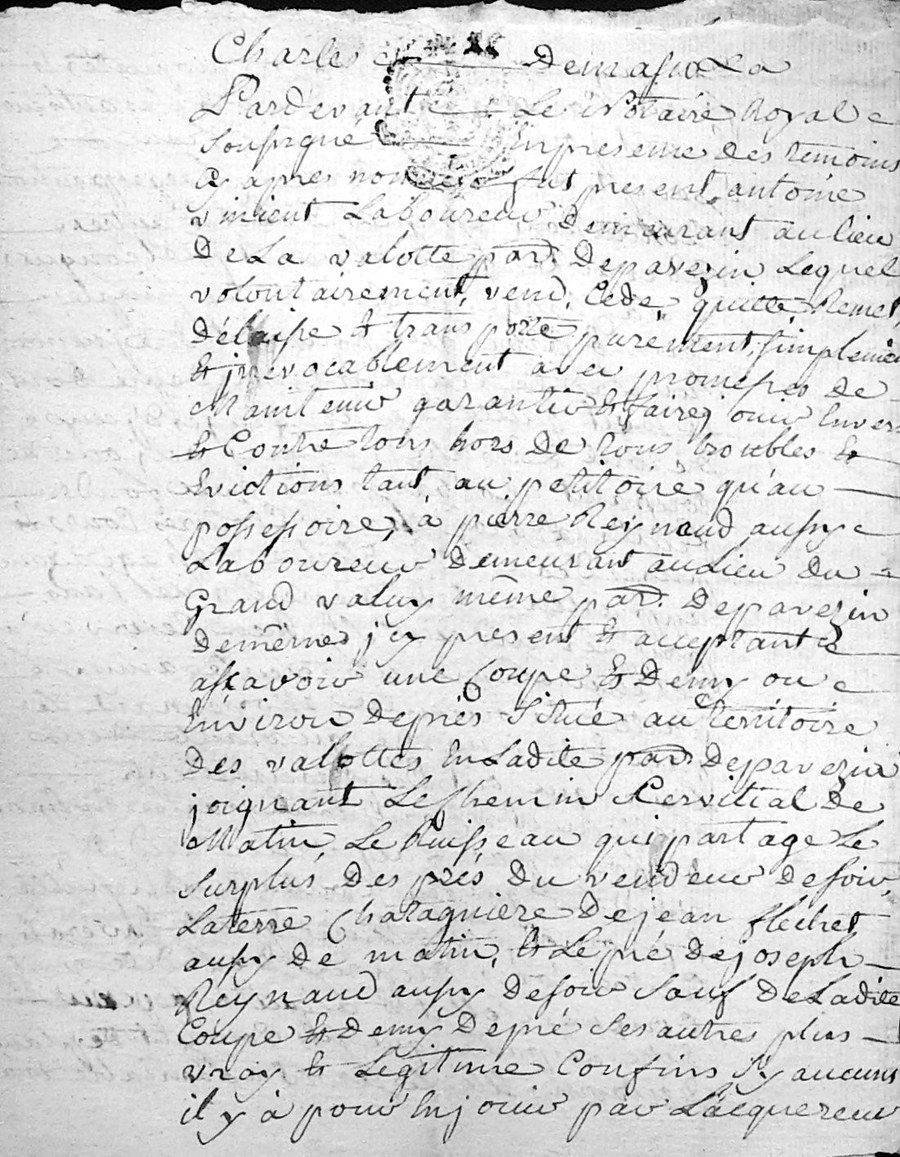 Charles
Pardevant Le Notaire Royal
Soussigné En presence des temoins
Cy apres nommés fut present, antoine
vincent Laboureur demeurant au lieu
De La valotte par. Depavezin Lequel
volontairement, vend, Cede quitte Remet,
Délaisse & transporte purement, simplement
& jrrevocablement avec promesses de
Maintenir garantir & faire jouir Envers
& Contre tous hors de tous troubles &
Evictions tant, au petitoire qu'au
possessoire, à pierre Reynaud aussy
Laboureur demeurant au Lieu du
Grand valuy même par. Depavezin
demême jcy present & acceptant
assavoir une Coupe & Demy ou
Environ deprés Situé au territoire
Des valottes En Ladite par. Depavezin
joignant Le Chemin Servitial De
Matin, Le Ruisseau qui partage Le
Surplus Des prés Du vendeur de soir,
La terre Chatagnière de jean fléchet
aussy De matin, & Le pré de joseph
Reynaud aussy de soir Sauf De Ladite
Coupe & Demy De pré Ses autres plus
vray & Légitime Confins sy aucuns
il y à pour En jouir par L'acquereur